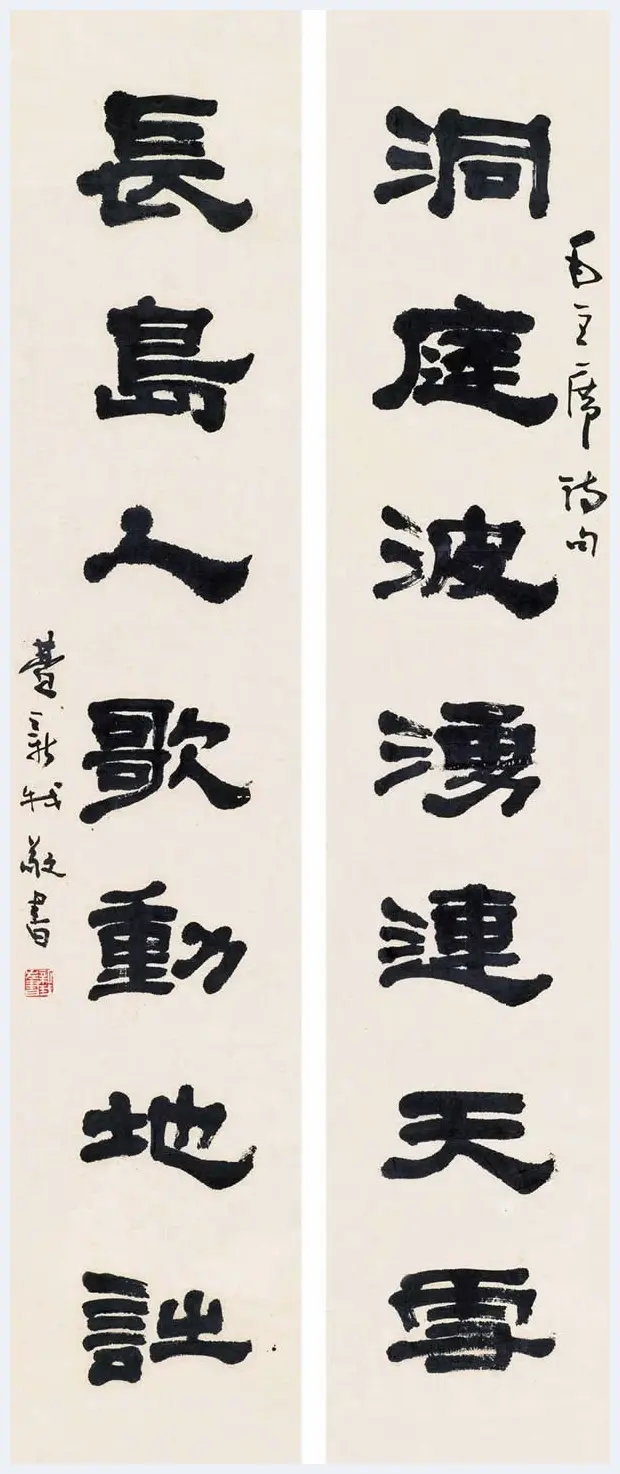 毛主席詩句
洞庭波湧連天雪
長島人歌動地詩
費新我敬書